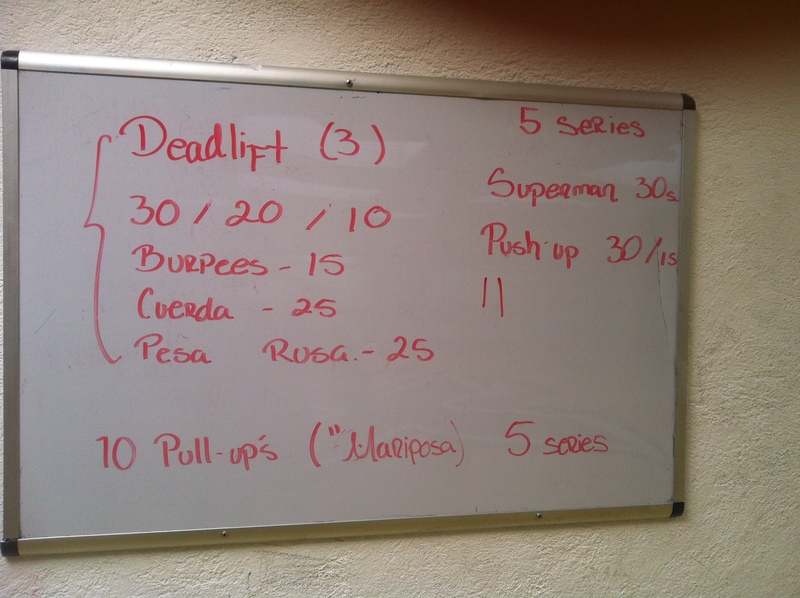 Deadlift (3)
30 / 20 / 10
Burpees - 15
Cuerda - 25
Pesa Rusa. - 25
5 series
Superman 30s
Push-up 30/15
||
10 Pull-up's ("Mariposa) 5 series